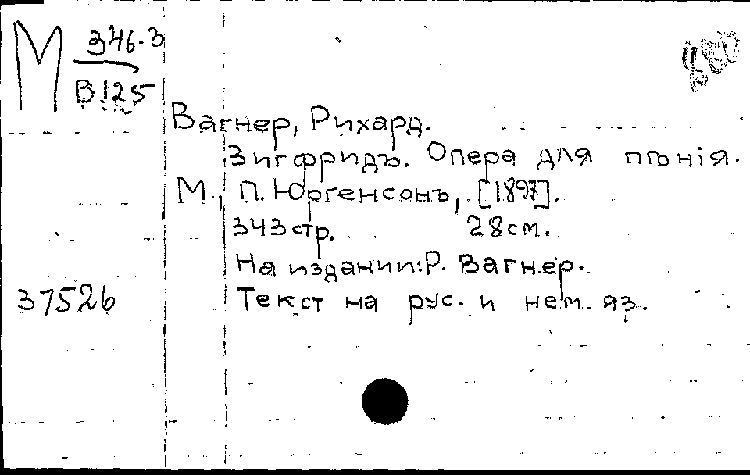 М 346-3
В125
Вагнер, Рихард.
Зигфридъ. Опера для пѣнія.
М., П. Юргенсонъ, [1897].
343 стр. 28 см.
На издании: Р. Вагнер.
37526 Текст на рус. и нем. яз.